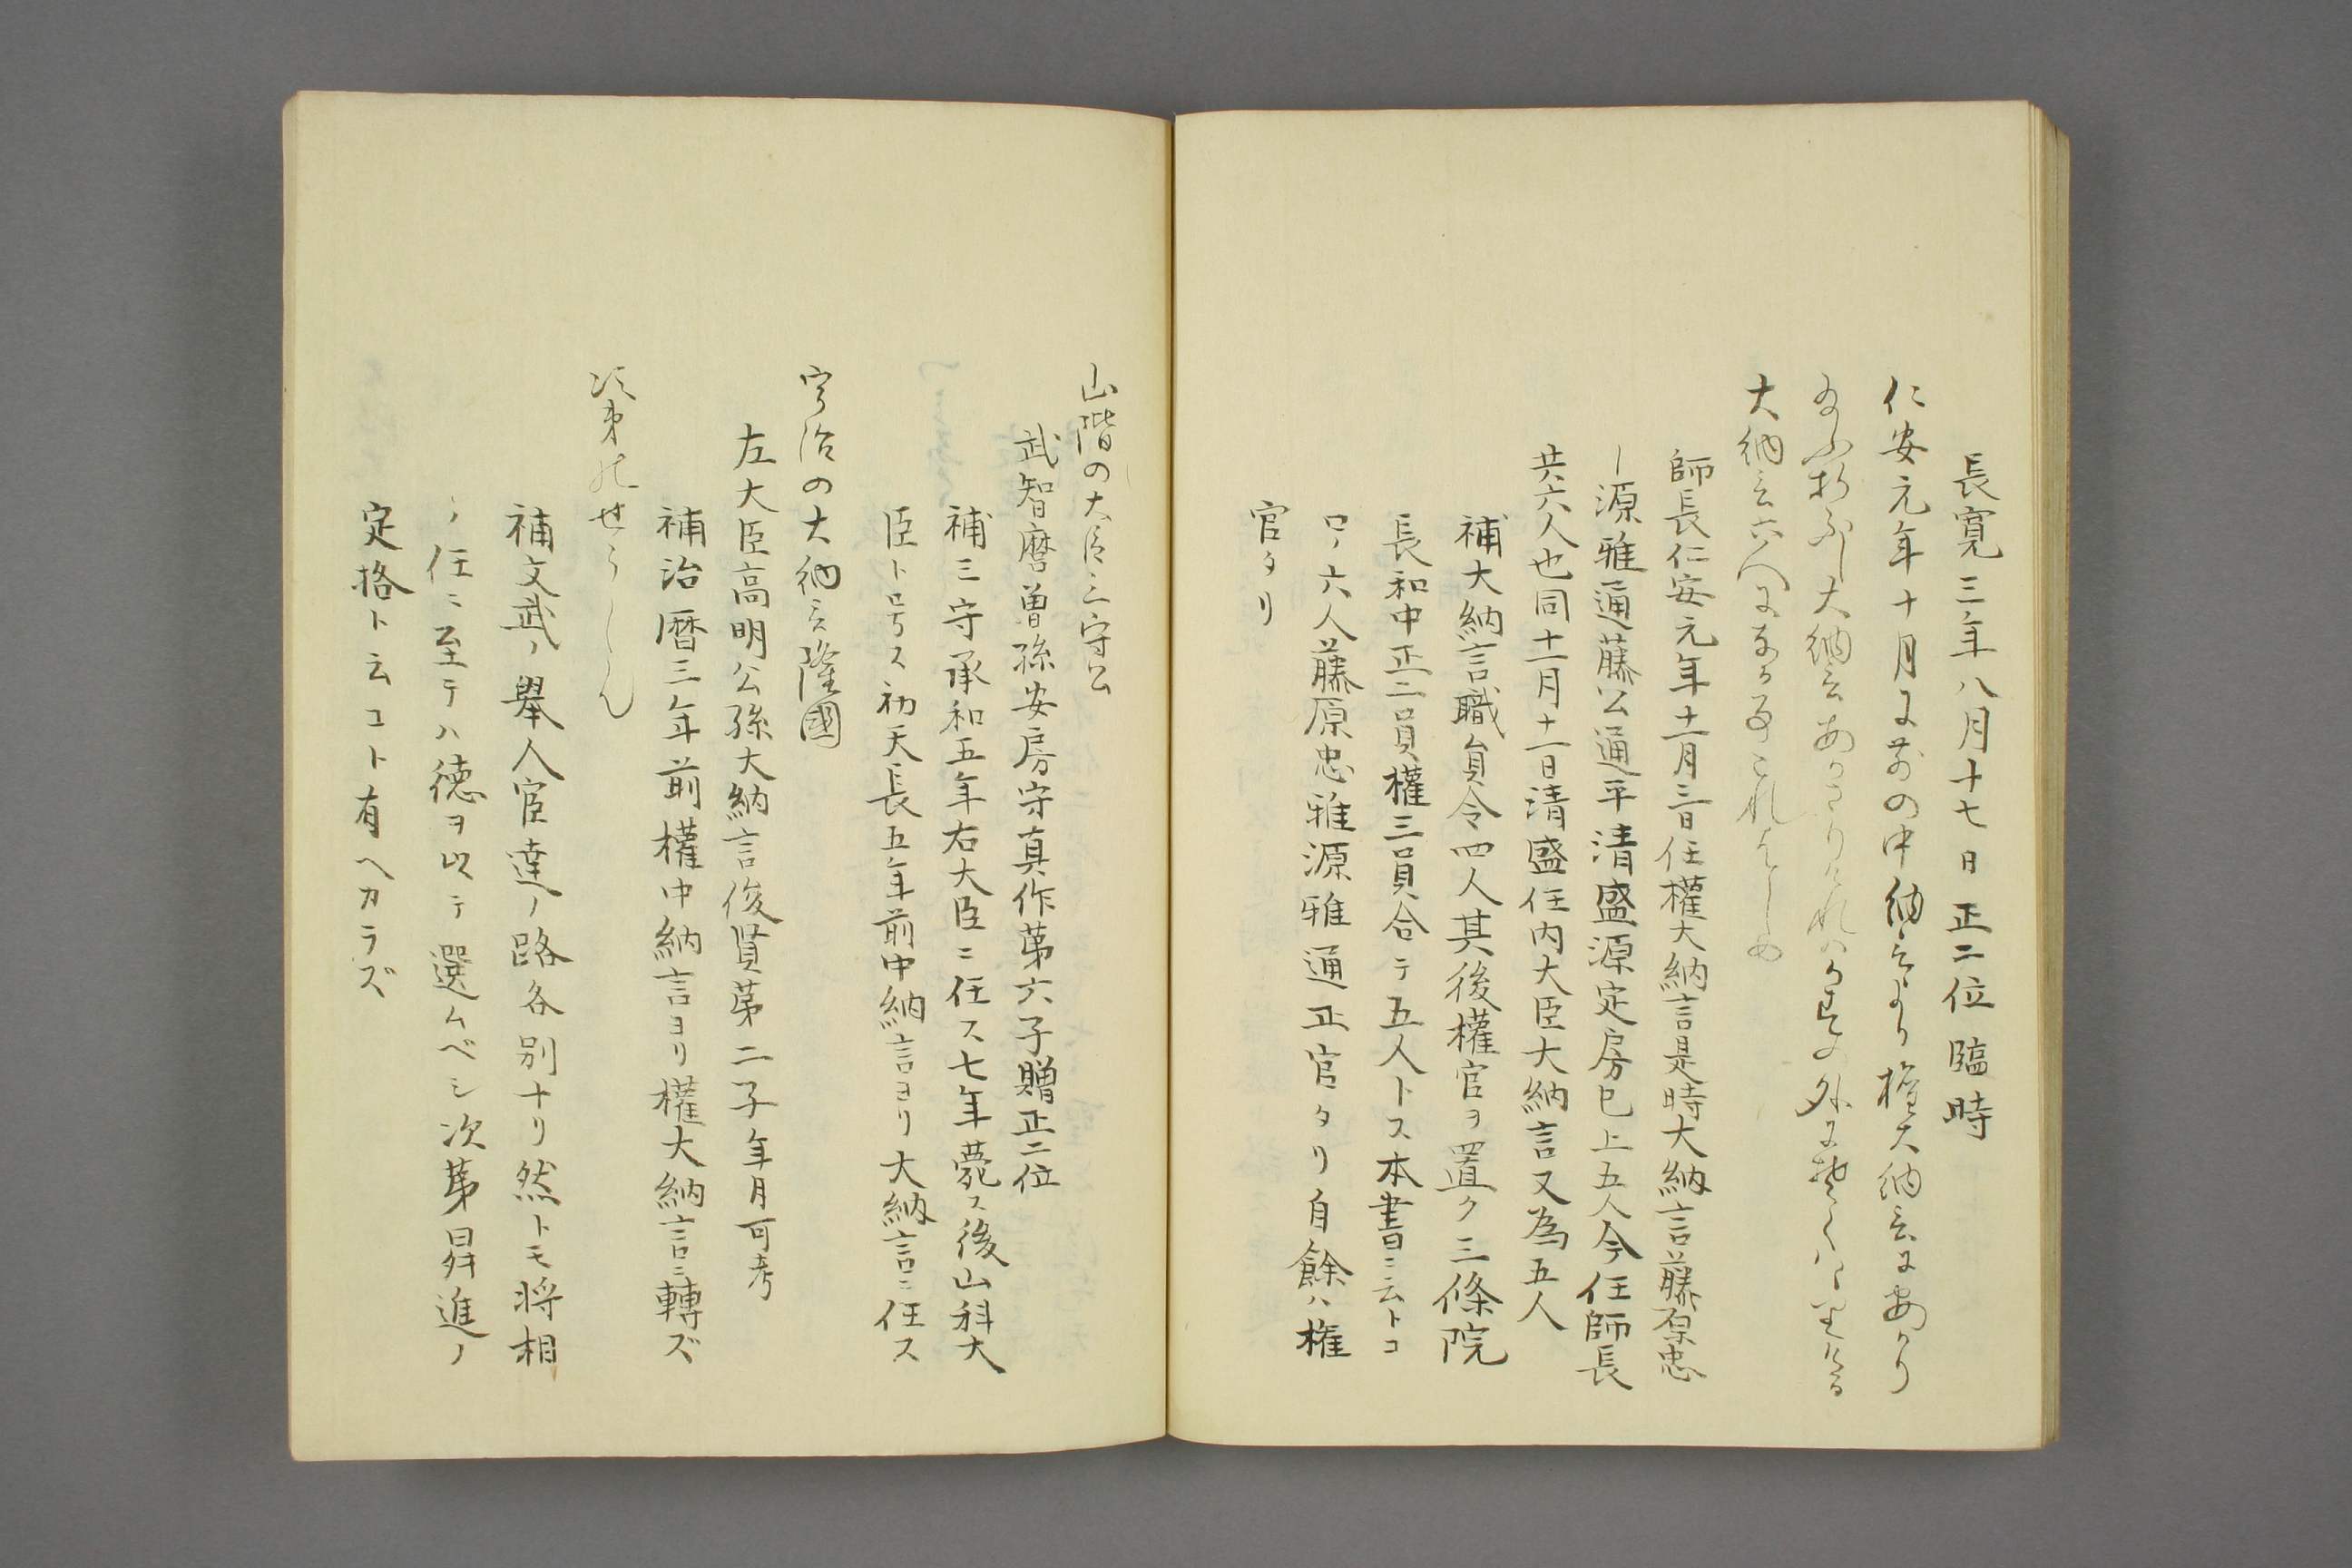 長寛三年八月十七日正二位臨時
仁安元年十月に前の中納言より権大納言にあかり
給ふ折ふし大納言あかさりけれはかすの外にそくはゝりける
大納言六人になる事これはしめ
師長仁安元年十一月三日任權大納言是時大納言藤原忠
ー源雅通藤公通平清盛源定房已上五人今任師長
共六人也同十一月十一日清盛任内大臣大納言又為五人
補大納言職員令四人其後權官ヲ置ク三條院
長和中正二員權三員合テ五人トス本書ニ云トコ
ロノ六人藤原忠雅源雅通正官タリ自餘ハ権
官タリ
山階の大臣三守公
武智麿曽孫安房守真作第六子贈正二位
補三守承和五年右大臣ニ任ス七年薨ス後山科大
臣ト号ス初天長五年前中納言ヨリ大納言ニ任ス
宇治の大納言隆國
左大臣高明公孫大納言俊賢第二子年月可考
補治暦三年前權中納言ヨリ權大納言ニ轉ズ
次第のせうしん
補文武ノ舉人宦達ノ路各別ナリ然トモ将相
ノ任ニ至テハ徳ヲ以テ選ムベシ次第昇進ノ
定格ト云コト有ヘカラズ